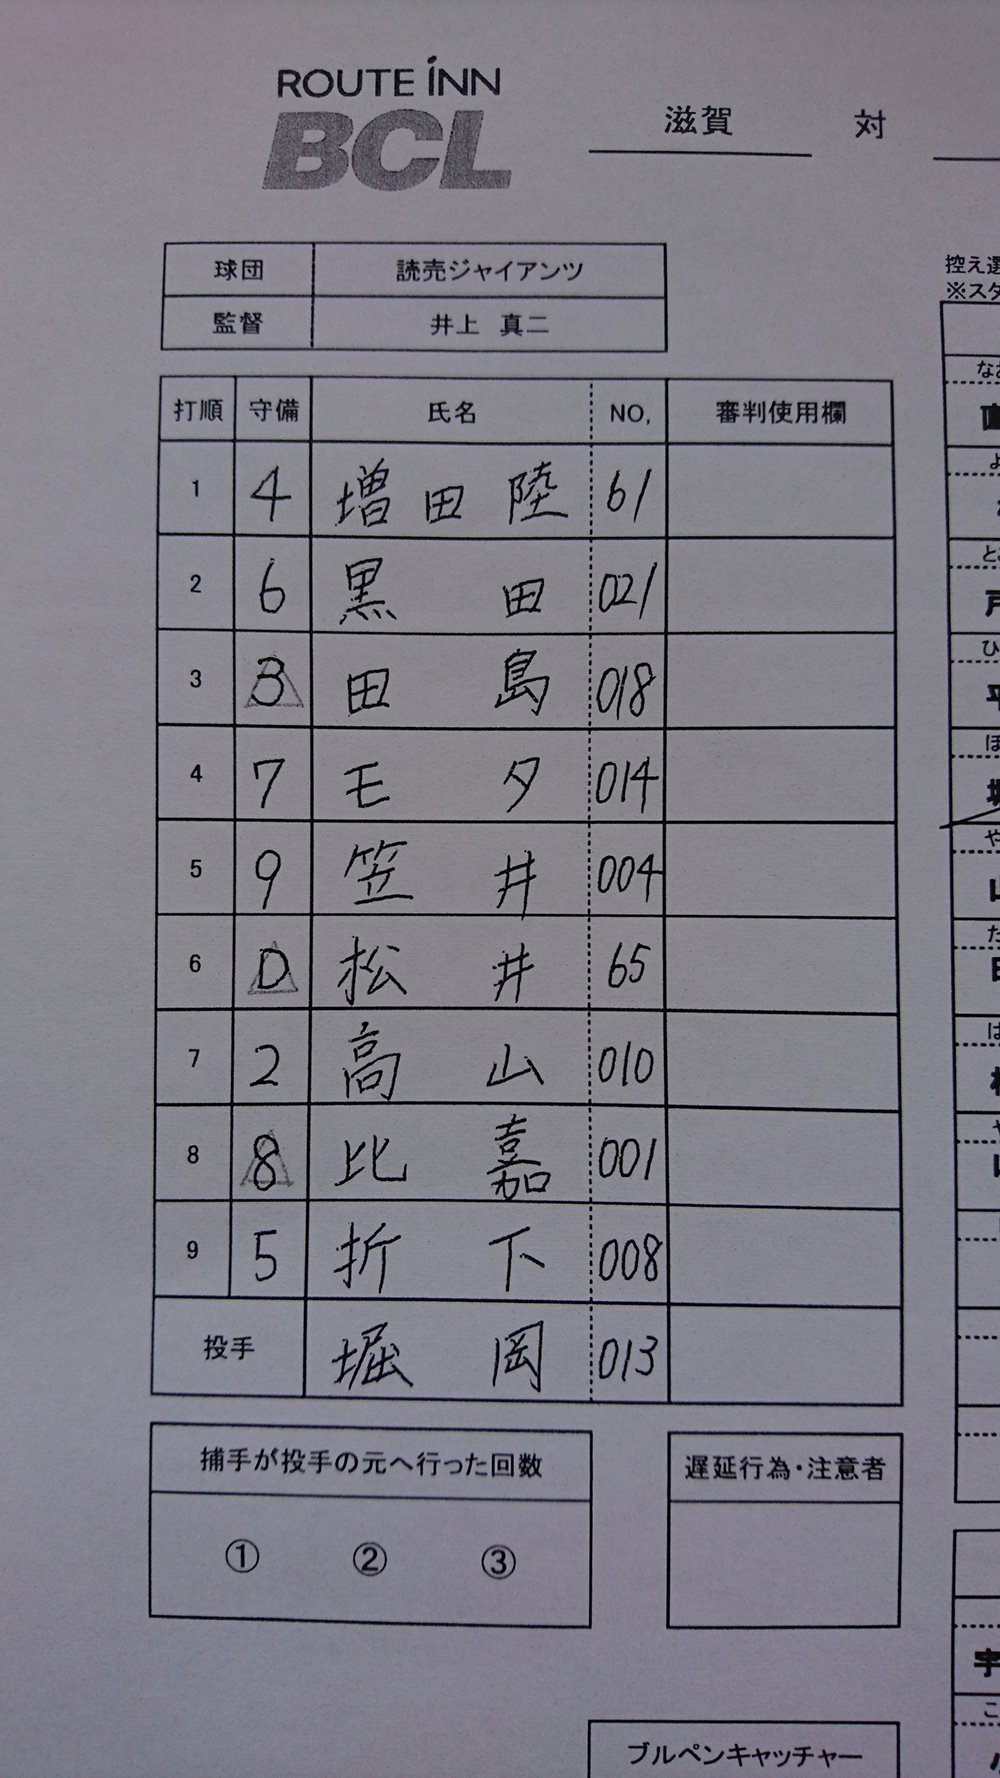 ROUTE INN
BCL
滋賀 対
球団 読売ジャイアンツ
監督 井上 真二
控え選
※スタ
打順 守備 氏名 NO, 審判使用欄
1 4 増田陸 61
2 6 黒田 021
3 3 田島 018
4 7 モタ 014
5 9 笠井 004
6 D 松井 65
7 2 高山 010
8 8 比嘉 001
9 5 折下 008
投手 堀岡 013
捕手が投手の元へ行った回数
① ② ③
遅延行為・注意者
ブルペンキャッチャー